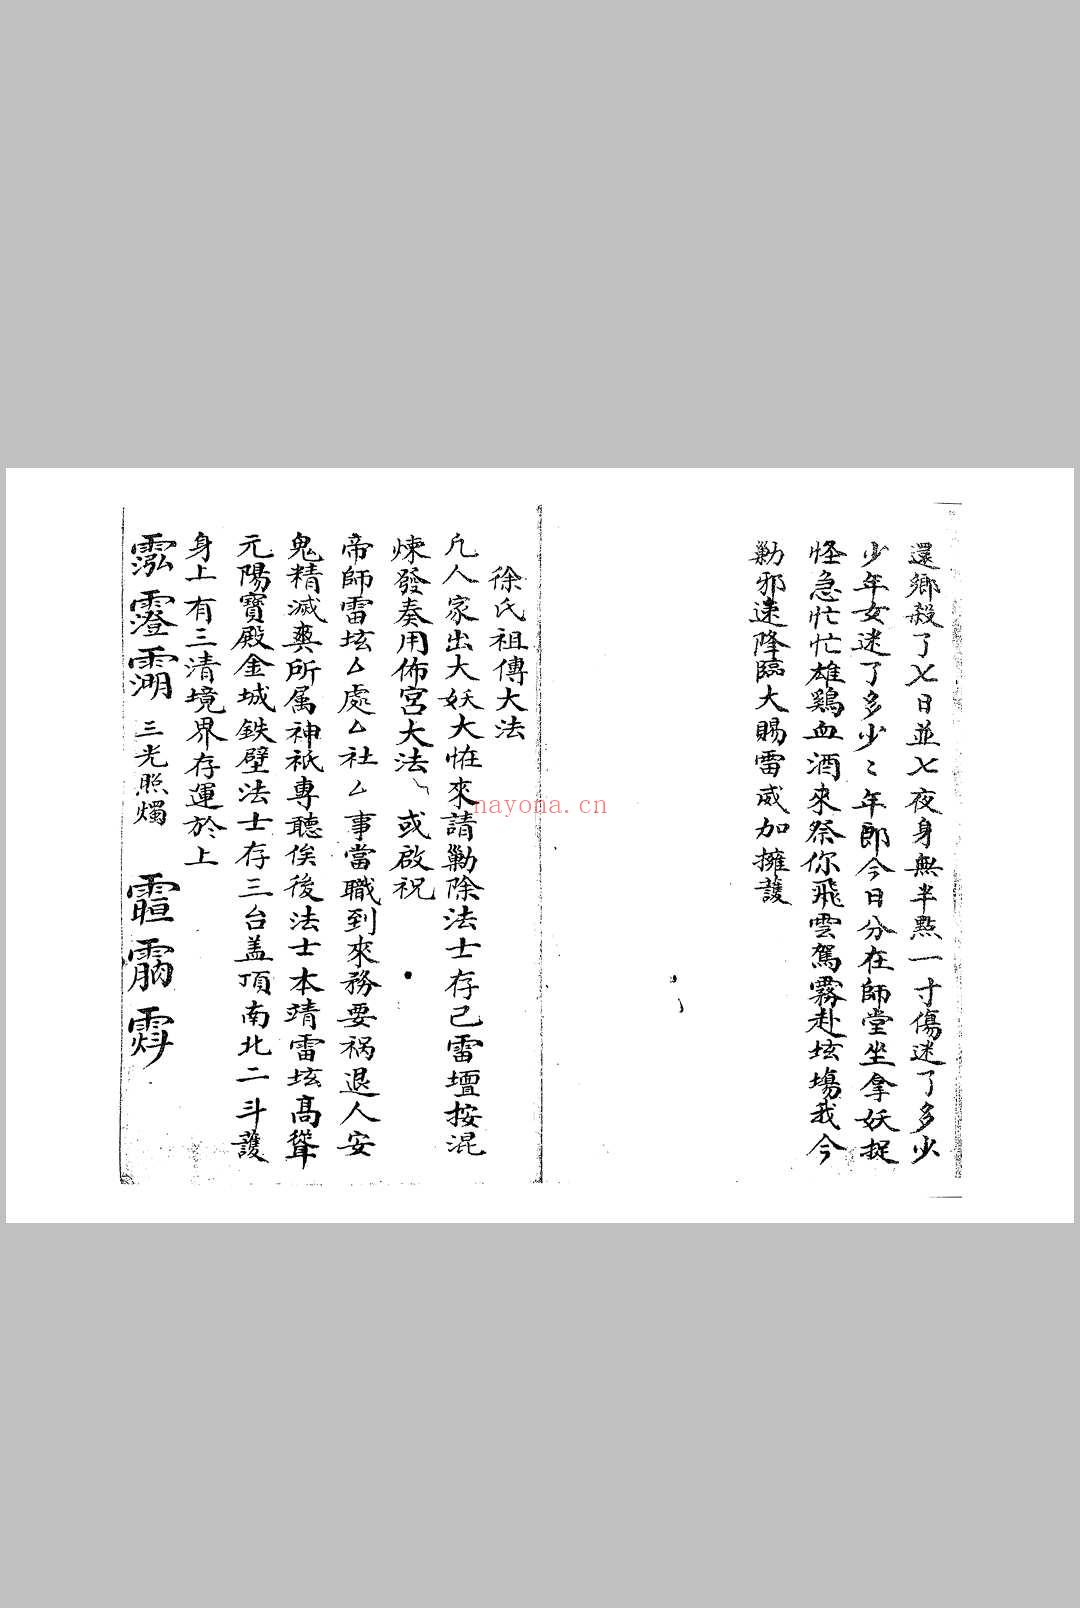 還鄉殺了七日並七夜身無半點一寸傷迷了多少
少年女迷了多少〻年郎今日分在師堂坐拿妖捉
怪急忙忙雄鷄血酒來祭你飛雲駕霧赴坛塲我今
勦邪速降臨大賜雷威加擁護
徐氏祖傳大法
凡人家出大妖大恠來請勦除法士存己雷壇按混
煉發奏用佈宮大法 或啟祝
帝師雷坛厶處厶社厶事當職到來務要祸退人安
鬼精滅 所属神祇專聽俟後法士本靖雷坛髙聳
元陽寶殿金城鉄壁法士存三台盖頂南北二斗護
身上有三清境界存運於上
三光照燭
nayona.cn